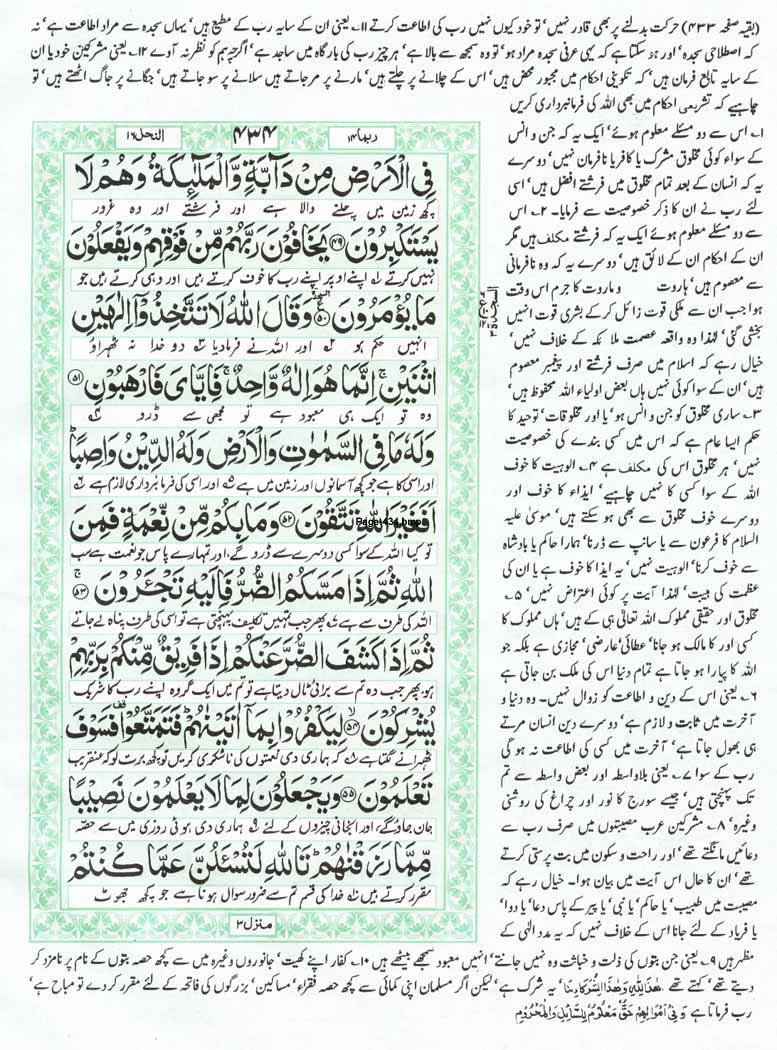 (بقیہ صفحہ ۴۳۳) حرکت بدلنے پر بھی قادر نہیں، تو خود کیوں نہیں رب کی اطاعت کرتے ۱۱۔ یعنی ان کے سایہ رب کے مطیع ہیں، یہاں سجدہ سے مراد اطاعت ہے، نہ
کہ اصطلاحی سجدہ، اور ہو سکتا ہے کہ یہی عرفی سجدہ مراد ہو، تو وہ سمجھ سے بالا ہے، ہر چیز رب کی بارگاہ میں ساجد ہے، اگرچہ ہم کو نظر نہ آوے ۱۲۔ یعنی مشرکین خود یا ان
کے سایہ تابع فرمان ہیں، کہ تکوینی احکام میں مجبور محض ہیں، اس کے چلانے پر چلتے ہیں، مارنے پر مر جاتے ہیں سلانے پر سو جاتے ہیں، جگانے پر جاگ اٹھتے ہیں، تو
چاہیے کہ تشریعی احکام میں بھی اللہ کی فرمانبرداری کریں
النحل ۱۶
۴۳۴
ربما ۱۴
فِي الْاَرْضِ مِنْ دَآبَّةٍ وَّالْمَلٰٓئِكَةُ وَهُمْ لَا
کچھ زمین میں چلنے والا ہے اور فرشتے اور وہ غرور
يَسْتَكْبِرُوْنَ ۴۹ يَخَافُوْنَ رَبَّهُمْ مِّنْ فَوْقِهِمْ وَيَفْعَلُوْنَ
نہیں کرتے اپنے اوپر اپنے رب کا خوف کرتے ہیں اور وہی کرتے ہیں جو
مَا يُؤْمَرُوْنَ ۵۰ وَقَالَ اللّٰهُ لَا تَتَّخِذُوْٓا اِلٰهَيْنِ
انہیں حکم ہو اور اللہ نے فرما دیا دو خدا نہ ٹھہراؤ
اثْنَيْنِ ۚ اِنَّمَا هُوَ اِلٰهٌ وَّاحِدٌ ۚ فَاِيَّايَ فَارْهَبُوْنِ ۵۱
وہ تو ایک ہی معبود ہے تو مجھی سے ڈرو
وَلَهٗ مَا فِي السَّمٰوٰتِ وَالْاَرْضِ وَلَهُ الدِّيْنُ وَاصِبًا ؕ
اور اسی کا ہے جو کچھ آسمانوں اور زمین میں ہے اور اسی کی فرمانبرداری لازم ہے
اَفَغَيْرَ اللّٰهِ تَتَّقُوْنَ ۵۲ وَمَا بِكُمْ مِّنْ نِّعْمَةٍ فَمِنَ
Page-434.bmp
تو کیا اللہ کے سوا کسی دوسرے سے ڈرو گے، اور تمہارے پاس جو نعمت ہے سب
اللّٰهِ ثُمَّ اِذَا مَسَّكُمُ الضُّرُّ فَاِلَيْهِ تَجْـَٔرُوْنَ ۵۳
اللہ کی طرف سے ہے پھر جب تمہیں تکلیف پہنچتی ہے تو اسی کی طرف پناہ لے جاتے
ثُمَّ اِذَا كَشَفَ الضُّرَّ عَنْكُمْ اِذَا فَرِيْقٌ مِّنْكُمْ بِرَبِّهِمْ
ہو، پھر جب وہ تم سے برائی ٹال دیتا ہے تو تم میں ایک گروہ اپنے رب کا شریک
يُشْرِكُوْنَ ۵۴ لِيَكْفُرُوْا بِمَآ اٰتَيْنٰهُمْ ؕ فَتَمَتَّعُوْا فَسَوْفَ
ٹھہرانے لگتا ہے کہ ہماری دی نعمتوں کی ناشکری کریں تو کچھ برت لو کہ عنقریب
تَعْلَمُوْنَ ۵۵ وَيَجْعَلُوْنَ لِمَا لَا يَعْلَمُوْنَ نَصِيْبًا
جان جاؤ گے، اور انجانی چیزوں کے لئے ہماری دی ہوئی روزی میں سے حصہ
مِّمَّا رَزَقْنٰهُمْ ؕ تَاللّٰهِ لَتُسْـَٔلُنَّ عَمَّا كُنْتُمْ
مقرر کرتے ہیں خدا کی قسم تم سے ضرور سوال ہونا ہے جو کچھ جھوٹ
منزل ۳
السجدۃ ۳
۱۔ اس سے دو مسئلے معلوم ہوئے، ایک یہ کہ جن و انس
کے سواء کوئی مخلوق مشرک یا کافر یا نافرمان نہیں، دوسرے
یہ کہ انسان کے بعد تمام مخلوق میں فرشتے افضل ہیں، اسی
لئے رب نے ان کا ذکر خصوصیت سے فرمایا۔ ۲۔ اس
سے دو مسئلے معلوم ہوئے ایک یہ کہ فرشتے مکلف ہیں مگر
ان کے احکام ان کے لائق ہیں، دوسرے یہ کہ وہ نافرمانی
سے معصوم ہیں، ہاروت و ماروت کا جرم اس وقت
ہوا جب ان سے ملکی قوت زائل کر کے بشری قوت انہیں
بخشی گئی، لہٰذا وہ واقعہ عصمت ملائکہ کے خلاف نہیں،
خیال رہے کہ اسلام میں صرف فرشتے اور پیغمبر معصوم
ہیں، ان کے سوا کوئی نہیں ہاں بعض اولیاء اللہ محفوظ ہیں،
۳۔ ساری مخلوق کو جن و انس ہو، یا اور مخلوقات، توحید کا
حکم ایسا عام ہے کہ اس میں کسی بندے کی خصوصیت
نہیں، ہر مخلوق اس کی مکلف ہے ۴۔ الوہیت کا خوف
اللہ کے سوا کسی کا نہیں چاہیے، ایذاء کا خوف اور
دوسرے خوف مخلوق سے بھی ہو سکتے ہیں، موسیٰ علیہ
السلام کا فرعون سے یا سانپ سے ڈرنا، ہمارا حاکم یا بادشاہ
سے خوف کرنا، الوہیت نہیں، یہ ایذا کا خوف ہے یا ان کی
عظمت کی ہیبت، لہٰذا آیت پر کوئی اعتراض نہیں، ۵۔
مخلوق اور حقیقی مملوک اللہ تعالیٰ ہی کے ہیں، ہاں مملوک کا
کسی اور کا مالک ہو جانا، عطائی، عارضی، مجازی ہے بلکہ جو
اللہ کا پیارا ہو جاتا ہے تمام دنیا اس کی ملک بن جاتی ہے
۶۔ یعنی اس کے دین و اطاعت کو زوال نہیں۔ وہ دنیا و
آخرت میں ثابت و لازم ہے، دوسرے دین انسان مرتے
ہی بھول جاتا ہے، آخرت میں کسی کی اطاعت نہ ہو گی
رب کے سوا ۷۔ یعنی بلاواسطہ اور بعض واسطہ سے تم
تک پہنچتی ہیں، جیسے سورج کا نور اور چراغ کی روشنی
وغیرہ، ۸۔ مشرکین عرب مصیبتوں میں صرف رب سے
دعائیں مانگتے تھے، اور راحت و سکون میں بت پرستی کرتے
تھے، ان کا حال اس آیت میں بیان ہوا۔ خیال رہے کہ
مصیبت میں طبیب، یا حاکم، یا نبی، یا پیر کے پاس دعا، یا دوا،
یا فریاد کے لئے جانا اس کے خلاف نہیں، کہ یہ مدد الٰہی کے
مظہر ہیں ۹۔ یعنی جن بتوں کی ذلت و خباثت وہ نہیں جانتے، انہیں معبود سمجھے بیٹھے ہیں ۱۰۔ کفار اپنے کھیت، جانوروں وغیرہ میں سے کچھ حصہ بتوں کے نام پر نامزد کر
دیتے تھے، کہتے تھے هٰذَا لِلّٰهِ وَهٰذَا لِشُرَكَآئِنَا، یہ شرک ہے، لیکن اگر مسلمان اپنی کمائی سے کچھ حصہ فقراء، مساکین، بزرگوں کی فاتحہ کے لئے مقرر کر دے تو مباح ہے،
رب فرماتا ہے وَفِيْٓ اَمْوَالِهِمْ حَقٌّ مَّعْلُوْمٌ لِّلسَّآئِلِ وَالْمَحْرُوْمِ